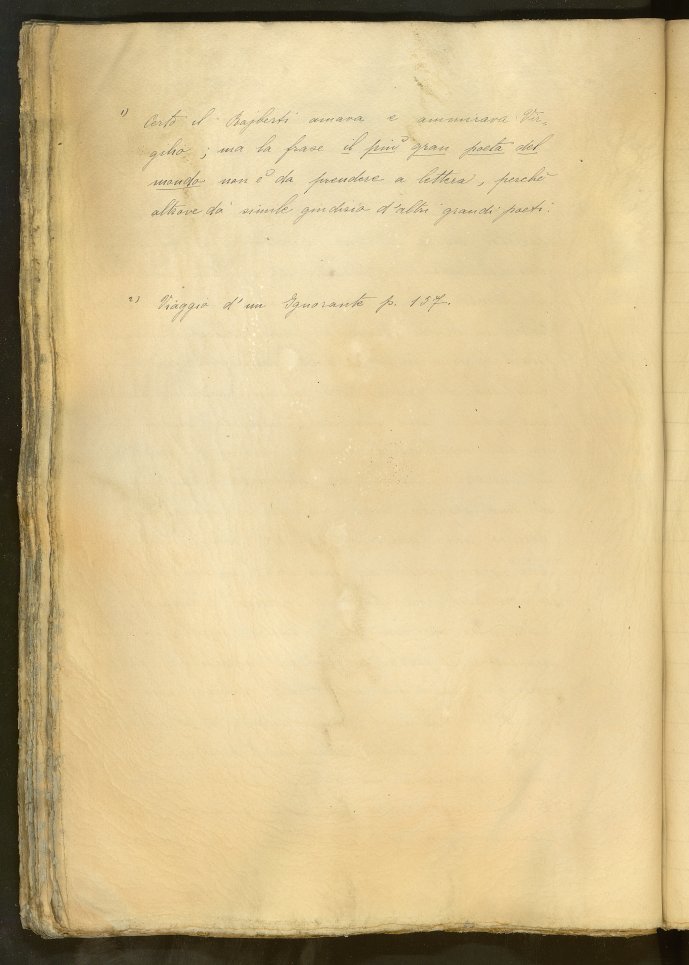 1) Certo il Rajberti amava e ammirava Vir-
gilio; ma la frase il più gran poeta del
mondo non è da prendere a lettera, perchè
altrove dà simile giudizio d'altri grandi poeti.
2) Viaggio d'un Ignorante p. 157.